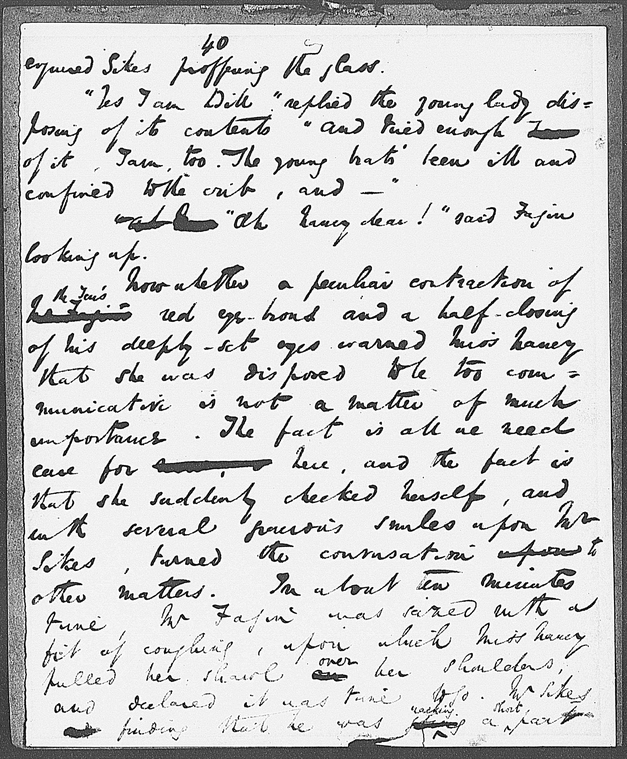 40
enquired Sikes proffering the glass.
"Yes I am Bill" replied the young lady dis=
posing of its contents "and tired enough
of it, I am, too. The young brats' been ill and
confined to the crib, and —"
"Ah Nancy dear!" said Fagin
looking up.
Now whether a peculiar contraction of
the Jew's red eye-brows and a half-closing
of his deeply-set eyes warned Miss Nancy
that she was disposed to be too com=
municative is not a matter of much
importance. The fact is all we need
care for here, and the fact is
that she suddenly checked herself, and
with several gracious smiles upon Mr
Sikes, turned the conversation to
other matters. In about ten minutes
time Mr Fagin was seized with a
fit of coughing, upon which Miss Nancy
pulled her shawl over her shoulders,
and declared it was time to go. Mr Sikes
finding that he was walking a short part